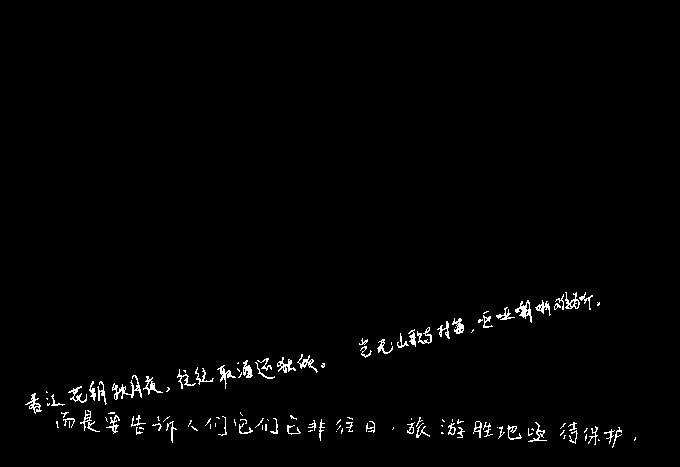 春江花朝秋月夜，往往取酒还独倾。 岂无山歌与村笛，呕哑嘲哳难为听。
而是要告诉人们它们已非往日，旅游胜地亟待保护．